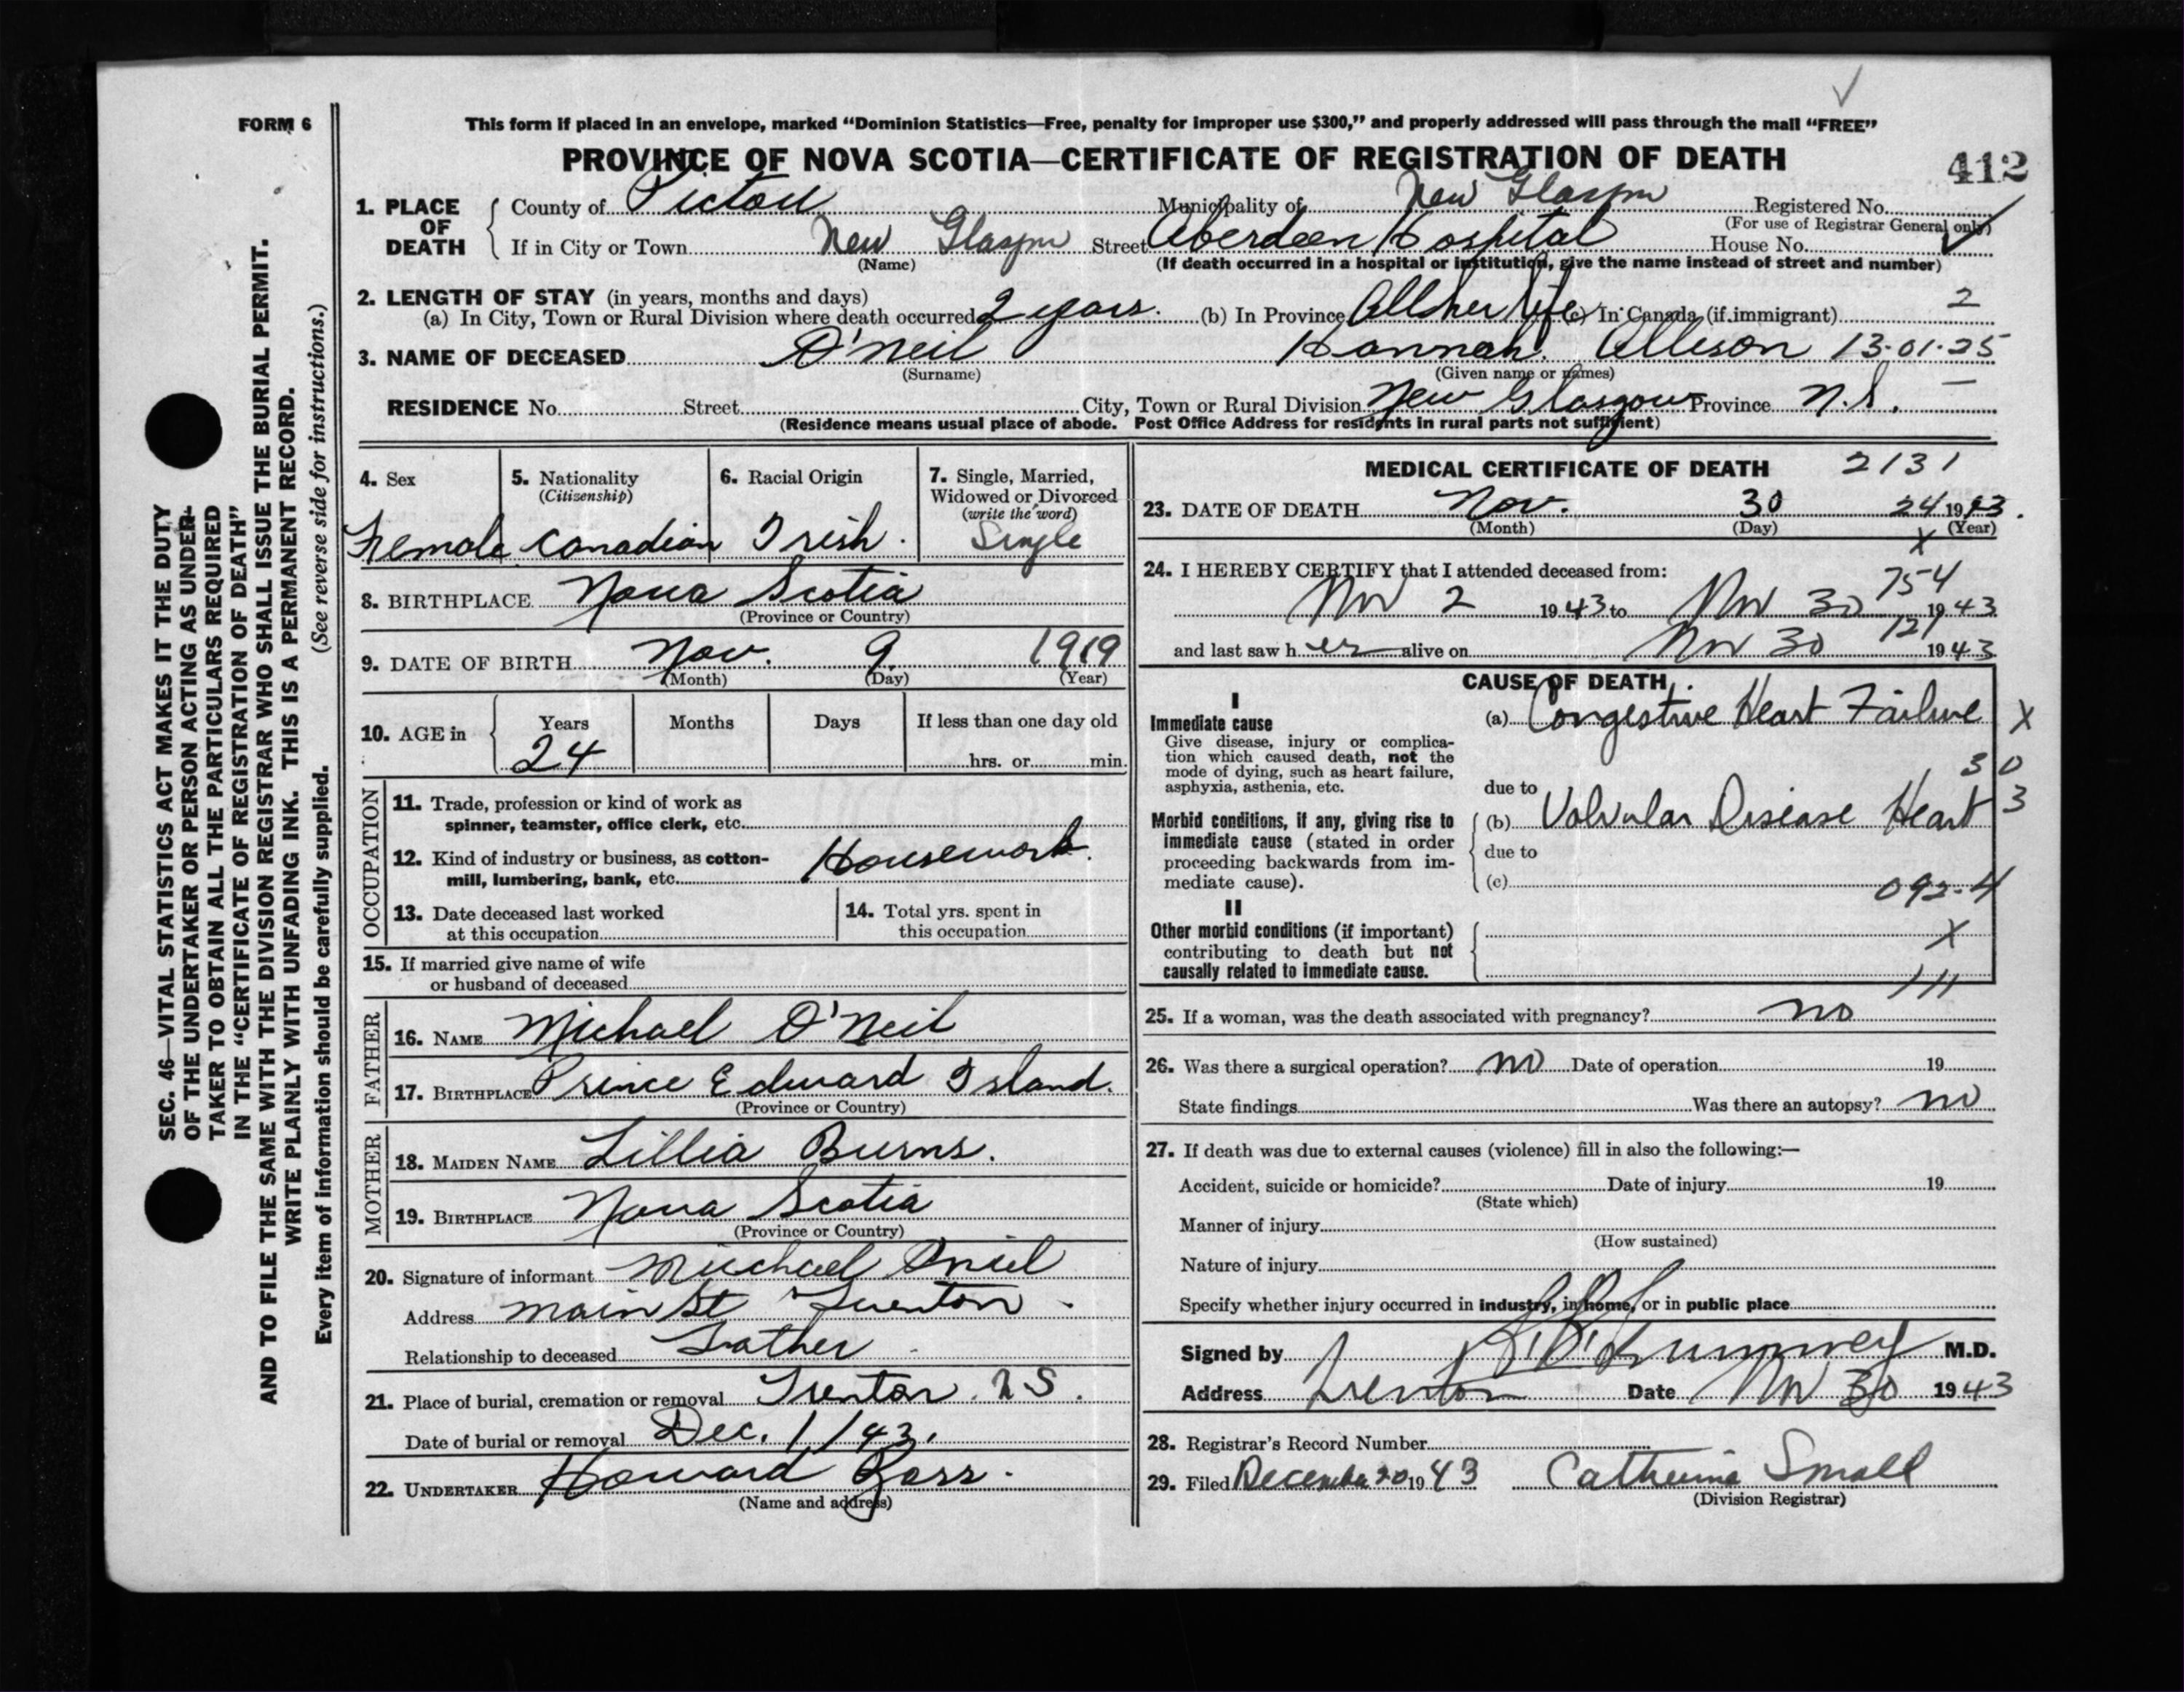 FORM 6
This form if placed in an envelope, marked “Dominion Statistics—Free, penalty for improper use $300,” and properly addressed will pass through the mail “FREE”
PROVINCE OF NOVA SCOTIA—CERTIFICATE OF REGISTRATION OF DEATH
412
1. PLACE OF DEATH
County of Pictou Municipality of New Glasgow Registered No.
(For use of Registrar General only)
If in City or Town New Glasgow Street Aberdeen Hospital House No.
(Name) (If death occurred in a hospital or institution, give the name instead of street and number)
2. LENGTH OF STAY (in years, months and days)
(a) In City, Town or Rural Division where death occurred 2 years. (b) In Province All her life (c) In Canada (if immigrant) 2
3. NAME OF DECEASED O'Neil Hannah. Allison 13-01-25
(Surname) (Given name or names)
RESIDENCE No. Street City, Town or Rural Division New Glasgow Province N.S.
(Residence means usual place of abode. Post Office Address for residents in rural parts not sufficient)
4. Sex Female
5. Nationality (Citizenship) Canadian
6. Racial Origin Irish.
7. Single, Married, Widowed or Divorced (write the word) Single
8. BIRTHPLACE Nova Scotia
(Province or Country)
9. DATE OF BIRTH Nov. 9. 1919
(Month) (Day) (Year)
10. AGE in Years Months Days If less than one day old
24 hrs. or min.
OCCUPATION
11. Trade, profession or kind of work as
spinner, teamster, office clerk, etc.
12. Kind of industry or business, as cotton-
mill, lumbering, bank, etc. Housework.
13. Date deceased last worked
at this occupation
14. Total yrs. spent in
this occupation
15. If married give name of wife
or husband of deceased
FATHER
16. NAME Michael O'Neil
17. BIRTHPLACE Prince Edward Island.
(Province or Country)
MOTHER
18. MAIDEN NAME Lillia Burns.
19. BIRTHPLACE Nova Scotia
(Province or Country)
20. Signature of informant Michael Oniel
Address Main St Trenton.
Relationship to deceased Father
21. Place of burial, cremation or removal Trenton. N S.
Date of burial or removal Dec. 1/43.
22. UNDERTAKER Howard Ross.
(Name and address)
MEDICAL CERTIFICATE OF DEATH 2131
23. DATE OF DEATH Nov. 30 24 1943.
(Month) (Day) (Year)
X
24. I HEREBY CERTIFY that I attended deceased from: 754
Nov 2 1943 to Nov 30 1943
and last saw her alive on Nov 30 121 1943
CAUSE OF DEATH
I
Immediate cause
Give disease, injury or complica-
tion which caused death, not the
mode of dying, such as heart failure,
asphyxia, asthenia, etc.
(a) Congestive Heart Failure X
30
due to
Morbid conditions, if any, giving rise to
immediate cause (stated in order
proceeding backwards from im-
mediate cause).
(b) Valvular Disease Heart 3
due to
(c) 092-4
II
Other morbid conditions (if important)
contributing to death but not
causally related to immediate cause.
X
111
25. If a woman, was the death associated with pregnancy? no
26. Was there a surgical operation? no Date of operation 19
State findings Was there an autopsy? no
27. If death was due to external causes (violence) fill in also the following:—
Accident, suicide or homicide? Date of injury 19
(State which)
Manner of injury
(How sustained)
Nature of injury
Specify whether injury occurred in industry, in home, or in public place
Signed by M.D.
Address Trenton Date Nov 30 1943
28. Registrar's Record Number
29. Filed December 20 1943 Catherine Small
(Division Registrar)
SEC. 46—VITAL STATISTICS ACT MAKES IT THE DUTY
OF THE UNDERTAKER OR PERSON ACTING AS UNDER-
TAKER TO OBTAIN ALL THE PARTICULARS REQUIRED
IN THE “CERTIFICATE OF REGISTRATION OF DEATH”
AND TO FILE THE SAME WITH THE DIVISION REGISTRAR WHO SHALL ISSUE THE BURIAL PERMIT.
WRITE PLAINLY WITH UNFADING INK. THIS IS A PERMANENT RECORD.
Every item of information should be carefully supplied. (See reverse side for instructions.)